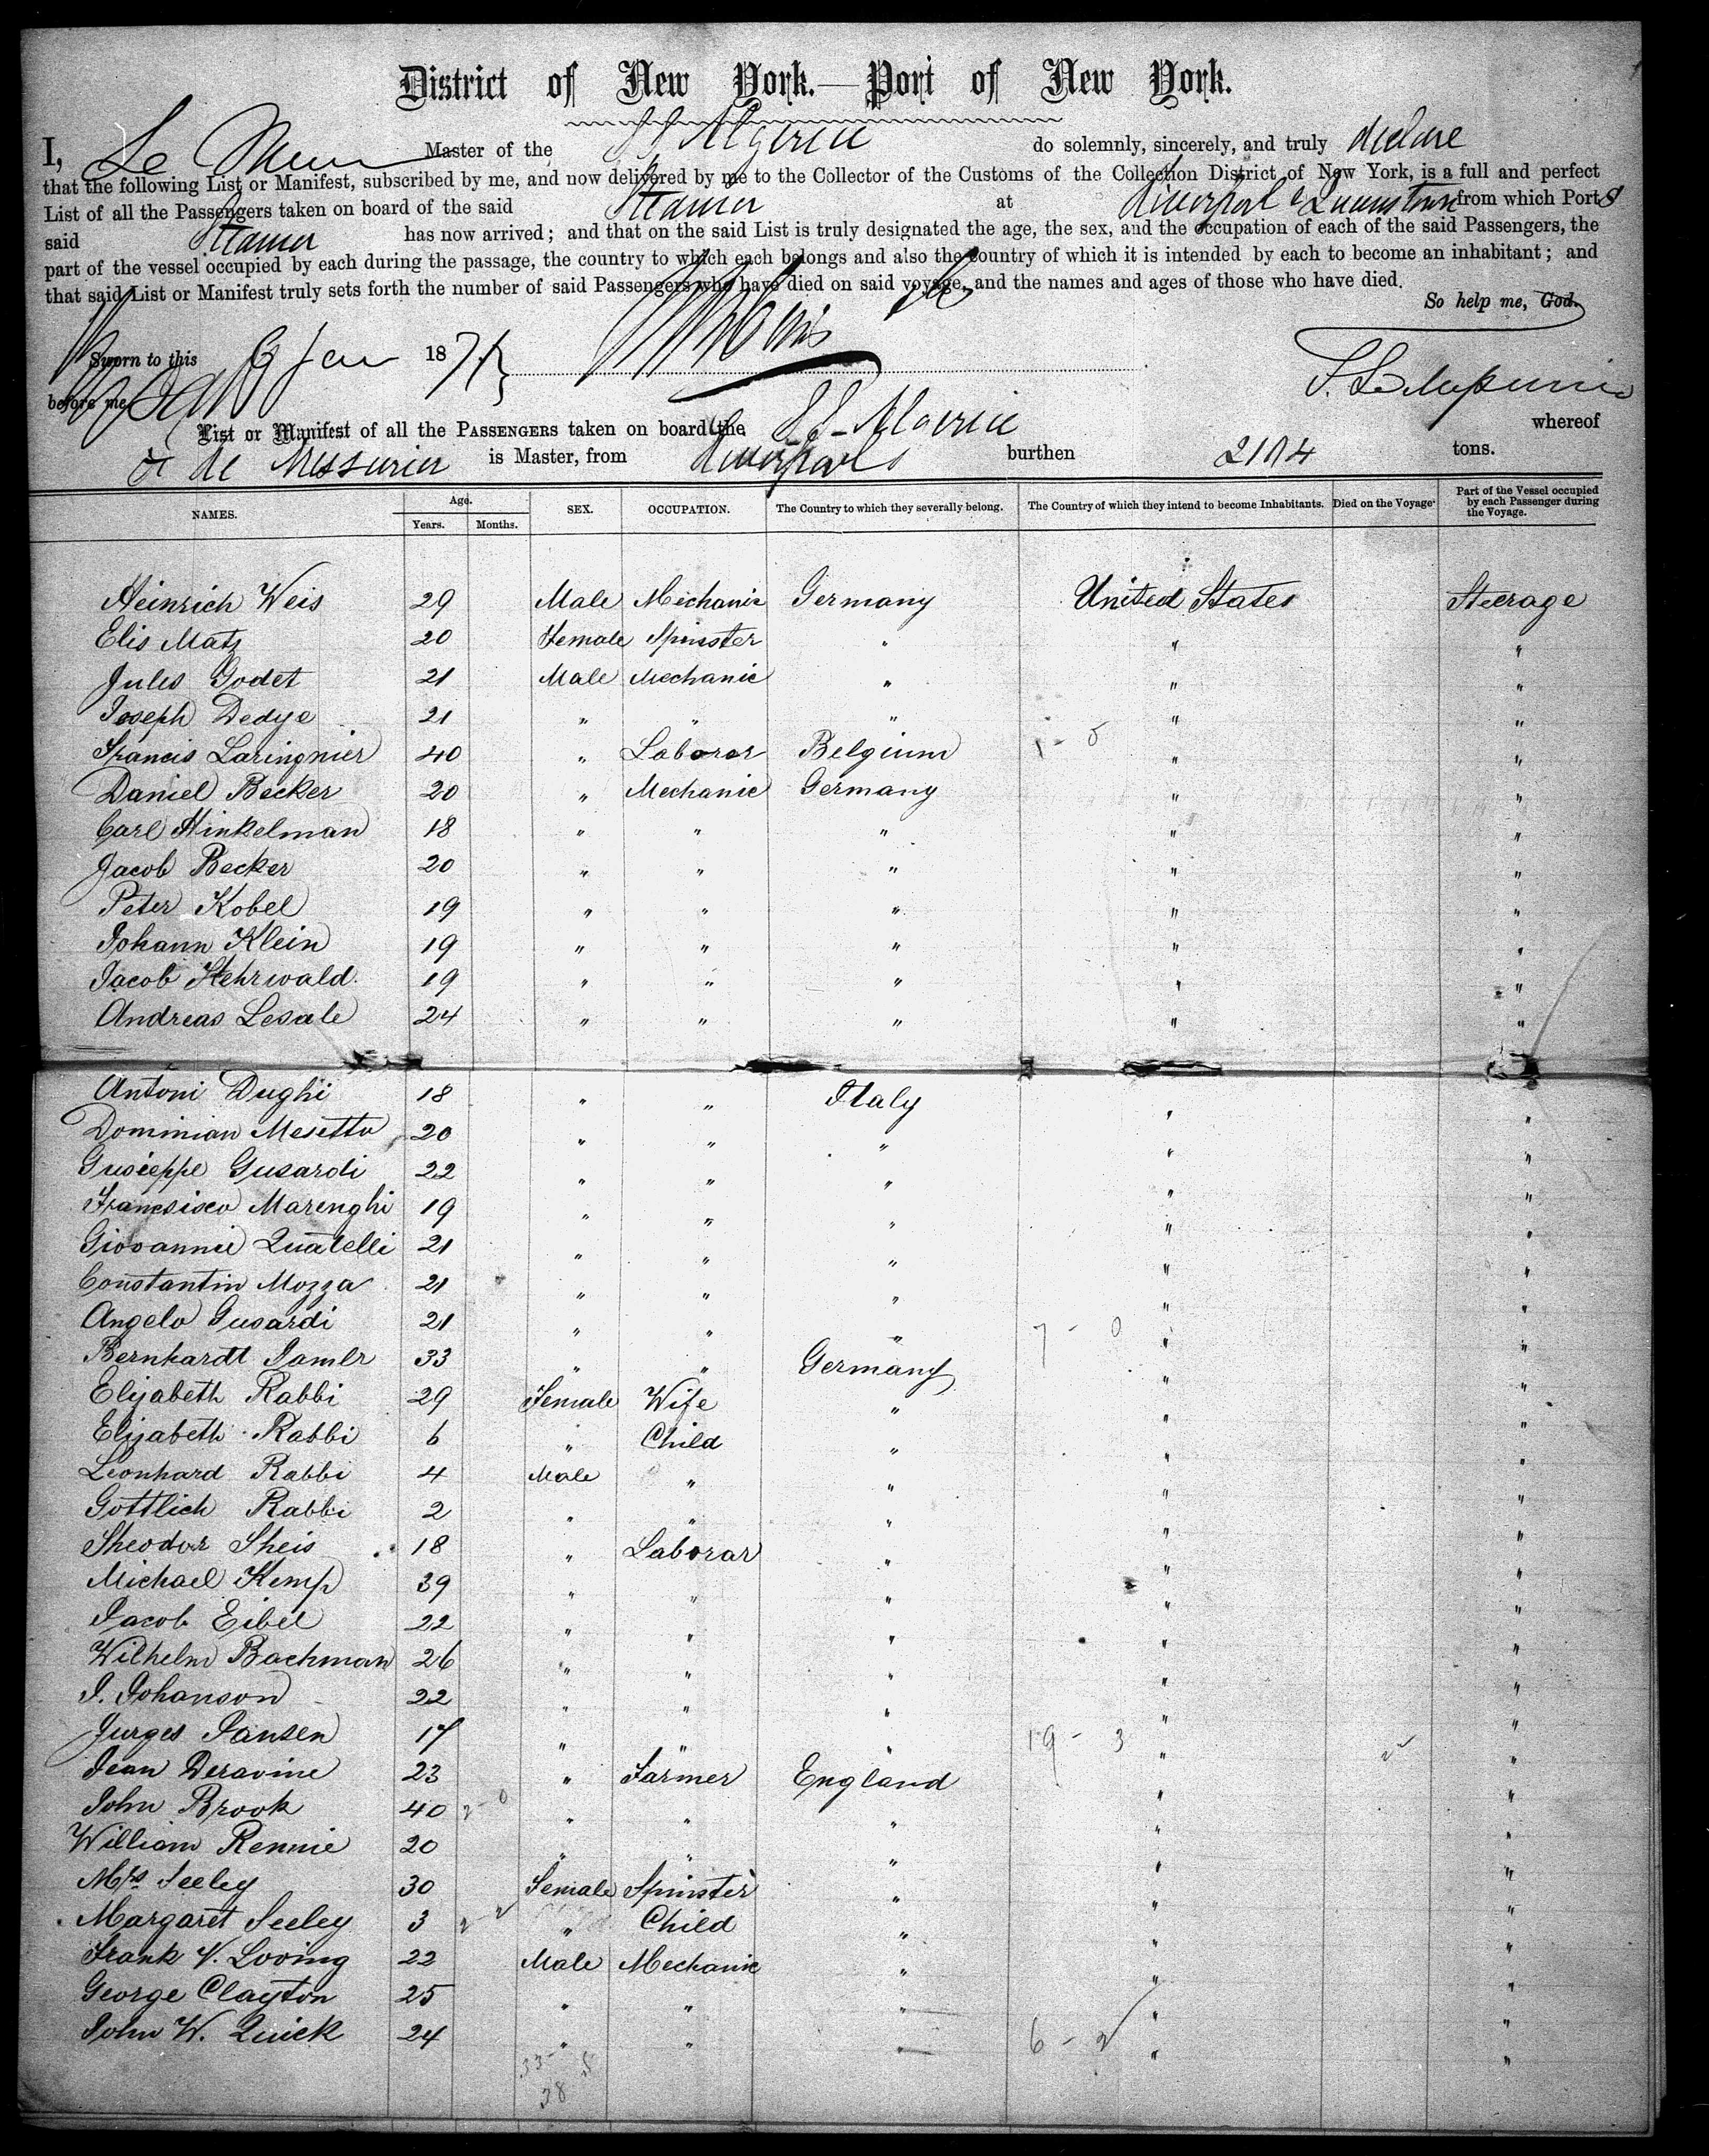 District of New York.—Port of New York.
I, Master of the SS Algeria do solemnly, sincerely, and truly declare
that the following List or Manifest, subscribed by me, and now delivered by me to the Collector of the Customs of the Collection District of New York, is a full and perfect
List of all the Passengers taken on board of the said Steamer at Liverpool & Queenstown from which Ports
said Steamer has now arrived; and that on the said List is truly designated the age, the sex, and the occupation of each of the said Passengers, the
part of the vessel occupied by each during the passage, the country to which each belongs and also the country of which it is intended by each to become an inhabitant; and
that said List or Manifest truly sets forth the number of said Passengers who have died on said voyage, and the names and ages of those who have died.
So help me, God.
Sworn to this 6 Jan 187
before me
List or Manifest of all the PASSENGERS taken on board the SS Algeria whereof
is Master, from Liverpool burthen tons.
NAMES. Age. Years. Months. SEX. OCCUPATION. The Country to which they severally belong. The Country of which they intend to become Inhabitants. Died on the Voyage. Part of the Vessel occupied by each Passenger during the Voyage.
Heinrich Weis 29 Male Mechanic Germany United States Steerage
Elis Matz 20 Female Spinster " " "
Jules Godet 21 Male Mechanic " " "
Joseph Dedye 21 " " " " "
Francis Laringnier 40 " Laborer Belgium 1 - 0 " "
Daniel Becker 20 " Mechanic Germany " "
Carl Hinkelman 18 " " " " "
Jacob Becker 20 " " " " "
Peter Kobel 19 " " " " "
Johann Klein 19 " " " " "
Jacob Stehrwald 19 " " " " "
Andreas Lesale 24 " " " " "
Antoni Dughi 18 " " Italy " "
Dominian Mesetto 20 " " " " "
Gusieppe Gusardi 22 " " " " "
Francsisco Marenghi 19 " " " " "
Giovannie Quatelli 21 " " " " "
Constantin Mozza 21 " " " " "
Angelo Gusardi 21 " " " 7 - 0 " "
Bernhardt Jamlr 33 " " Germany " "
Elizabeth Rabbi 29 Female Wife " " "
Elizabeth Rabbi 6 " Child " " "
Leonhard Rabbi 4 Male " " " "
Gottlich Rabbi 2 " " " " "
Theodor Theis 18 " Laborar " " "
Michael Kemp 39 " " " " "
Jacob Eibel 22 " " " " "
Wilhelm Bachman 26 " " " " "
J. Johanson 22 " " " " "
Jurges Jansen 17 " " " 19 - 3 " "
Jean Deravine 23 " Farmer England " "
John Brook 40 2 - 0 " " " " "
William Rennie 20 " " " " "
Mrs Seeley 30 Female Spinster " " "
Margaret Seeley 3 2 - 2 " Child " " "
Frank V. Loving 22 Male Mechanic " " "
George Clayton 25 " " " " "
John W. Quick 24 " " " 6 - 2 " "
33 -
38